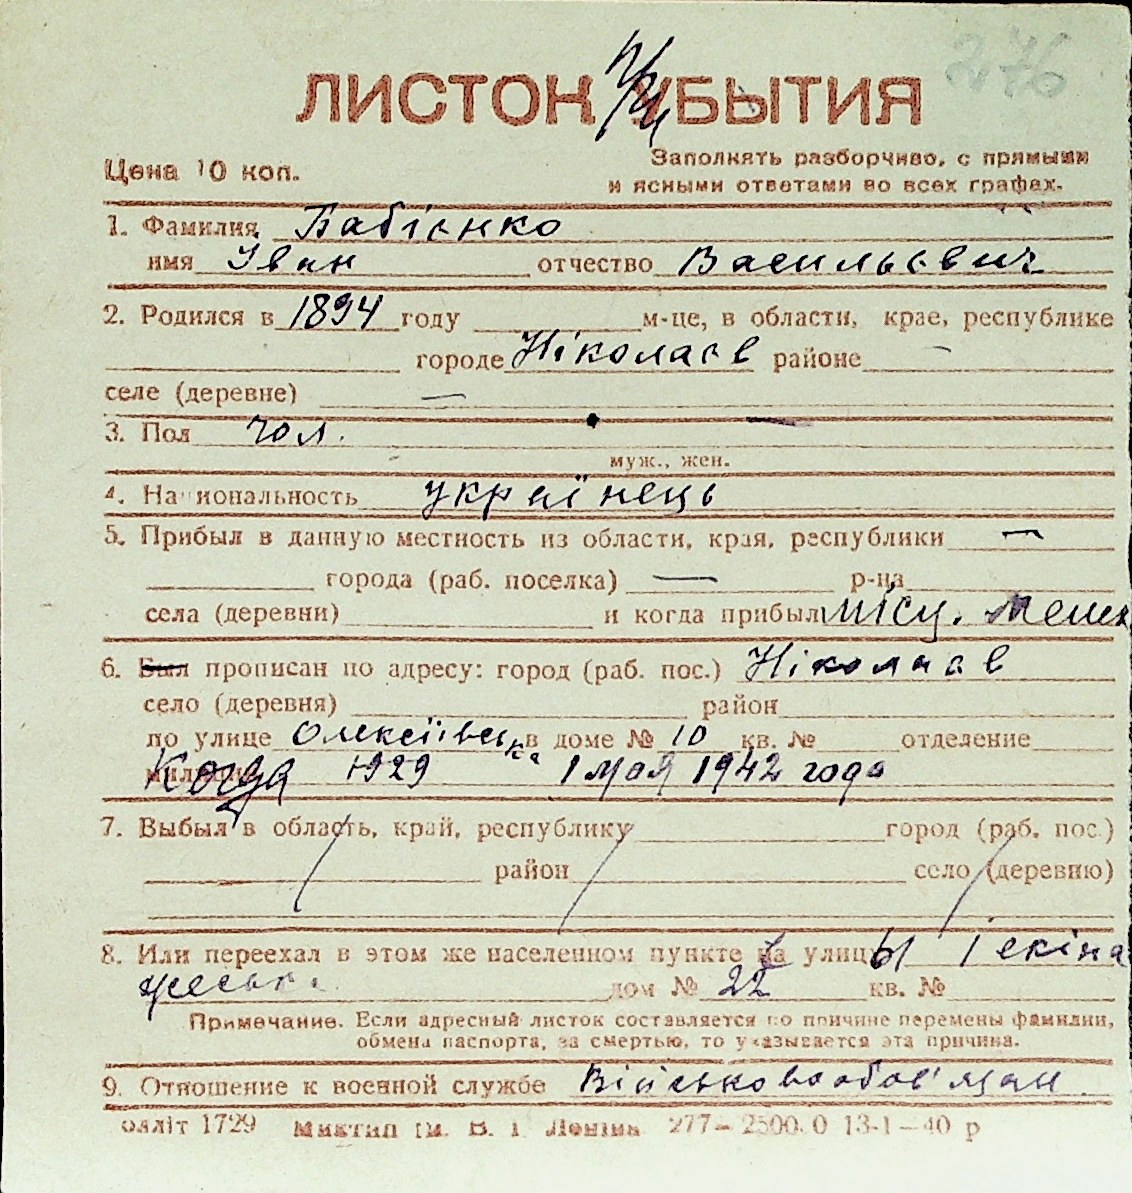 276
ЛИСТОК УБЫТИЯ
Цена 10 коп.
Заполнять разборчиво, с прямыми
и ясными ответами во всех графах.
1. Фамилия Бабієнко
имя Іван отчество Васильевич
2. Родился в 1894 году м-це, в области, крае, республике
городе Ніколаєв районе —
селе (деревне) —
3. Пол чол.
муж., жен.
4. Национальность українець
5. Прибыл в данную местность из области, края, республики —
города (раб. поселка) — р-на
села (деревни) и когда прибыл місц.
6. Был прописан по адресу: город (раб. пос.) Ніколаєв
село (деревня) район
по улице Олексіївська в доме № 10 кв. № отделение
милиции Когда 1929 1 мая 1942 года
7. Выбыл в область, край, республику город (раб. пос.)
район село (деревню)
8. Или переехал в этом же населенном пункте на улицы
дом № 22 кв. №
Примечание. Если адресный листок составляется по причине перемены фамилии,
обмена паспорта, за смертью, то указывается эта причина.
9. Отношение к военной службе Військовообов'язан
облліт 1729 Миктип ім. В. І. Леніна 277–2500.0 13-1–40 р